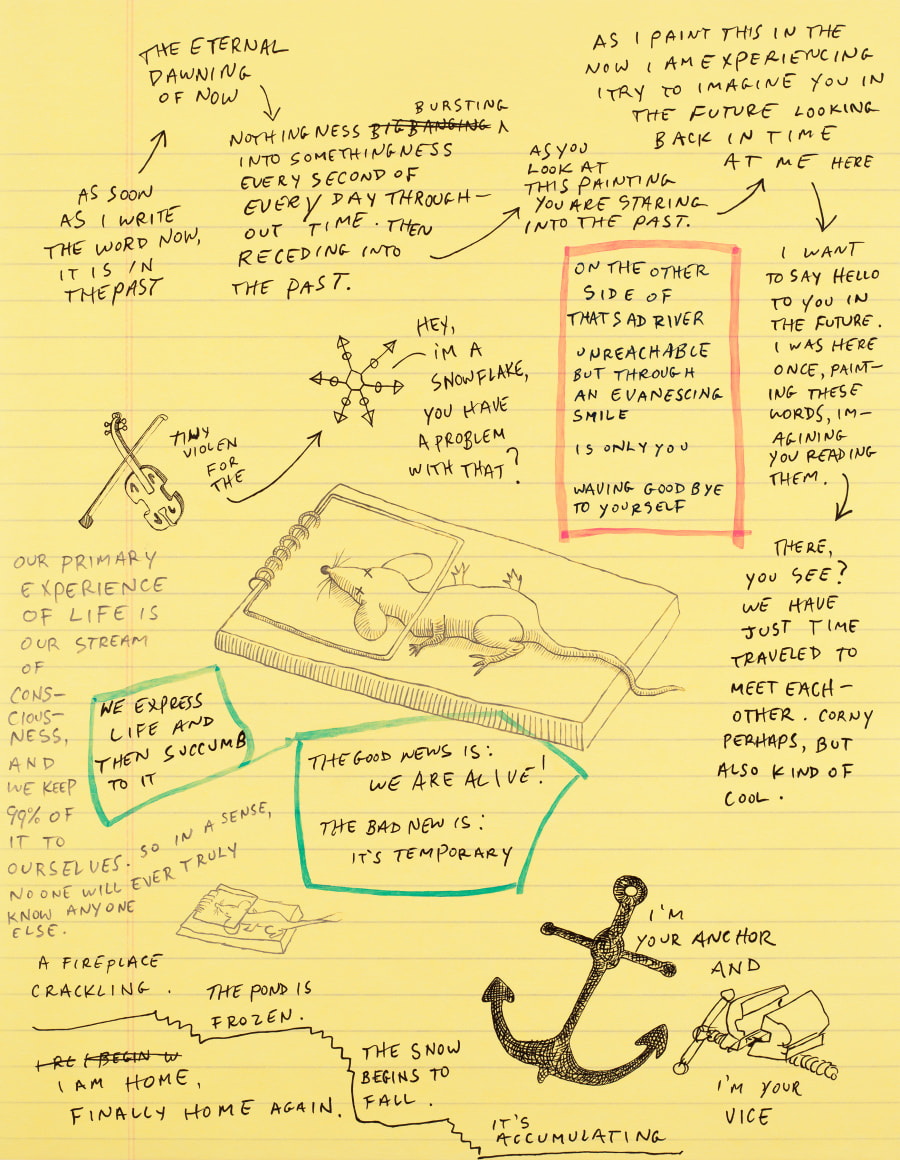 AS SOON
AS I WRITE
THE WORD NOW,
IT IS IN
THE PAST
THE ETERNAL
DAWNING
OF NOW
BURSTING
NOTHINGNESS BIG BANGING ^
INTO SOMETHINGNESS
EVERY SECOND OF
EVERY DAY THROUGH-
OUT TIME. THEN
RECEDING INTO
THE PAST.
AS YOU
LOOK AT
THIS PAINTING
YOU ARE STARING
INTO THE PAST.
AS I PAINT THIS IN THE
NOW I AM EXPERIENCING
I TRY TO IMAGINE YOU IN
THE FUTURE LOOKING
BACK IN TIME
AT ME HERE
I WANT
TO SAY HELLO
TO YOU IN
THE FUTURE.
I WAS HERE
ONCE, PAINT-
ING THESE
WORDS, IM-
AGINING
YOU READING
THEM.
THERE,
YOU SEE?
WE HAVE
JUST TIME
TRAVELED TO
MEET EACH-
OTHER. CORNY
PERHAPS, BUT
ALSO KIND OF
COOL.
ON THE OTHER
SIDE OF
THAT SAD RIVER
UNREACHABLE
BUT THROUGH
AN EVANESCING
SMILE
IS ONLY YOU
WAVING GOODBYE
TO YOURSELF
TINY
VIOLEN
FOR
THE
HEY,
I'M A
SNOWFLAKE,
YOU HAVE
A PROBLEM
WITH THAT?
OUR PRIMARY
EXPERIENCE
OF LIFE IS
OUR STREAM
OF
CONS-
CIOUS-
NESS,
AND
WE KEEP
99% OF
IT TO
OURSELVES. SO IN A SENSE,
NO ONE WILL EVER TRULY
KNOW ANYONE
ELSE.
WE EXPRESS
LIFE AND
THEN SUCCUMB
TO IT
THE GOOD NEWS IS:
WE ARE ALIVE!
THE BAD NEW IS:
IT'S TEMPORARY
A FIREPLACE
CRACKLING.
THE POND IS
FROZEN.
I RE I BEGIN W
I AM HOME,
FINALLY HOME AGAIN.
THE SNOW
BEGINS TO
FALL.
IT'S
ACCUMULATING
I'M
YOUR ANCHOR
AND
I'M YOUR
VICE